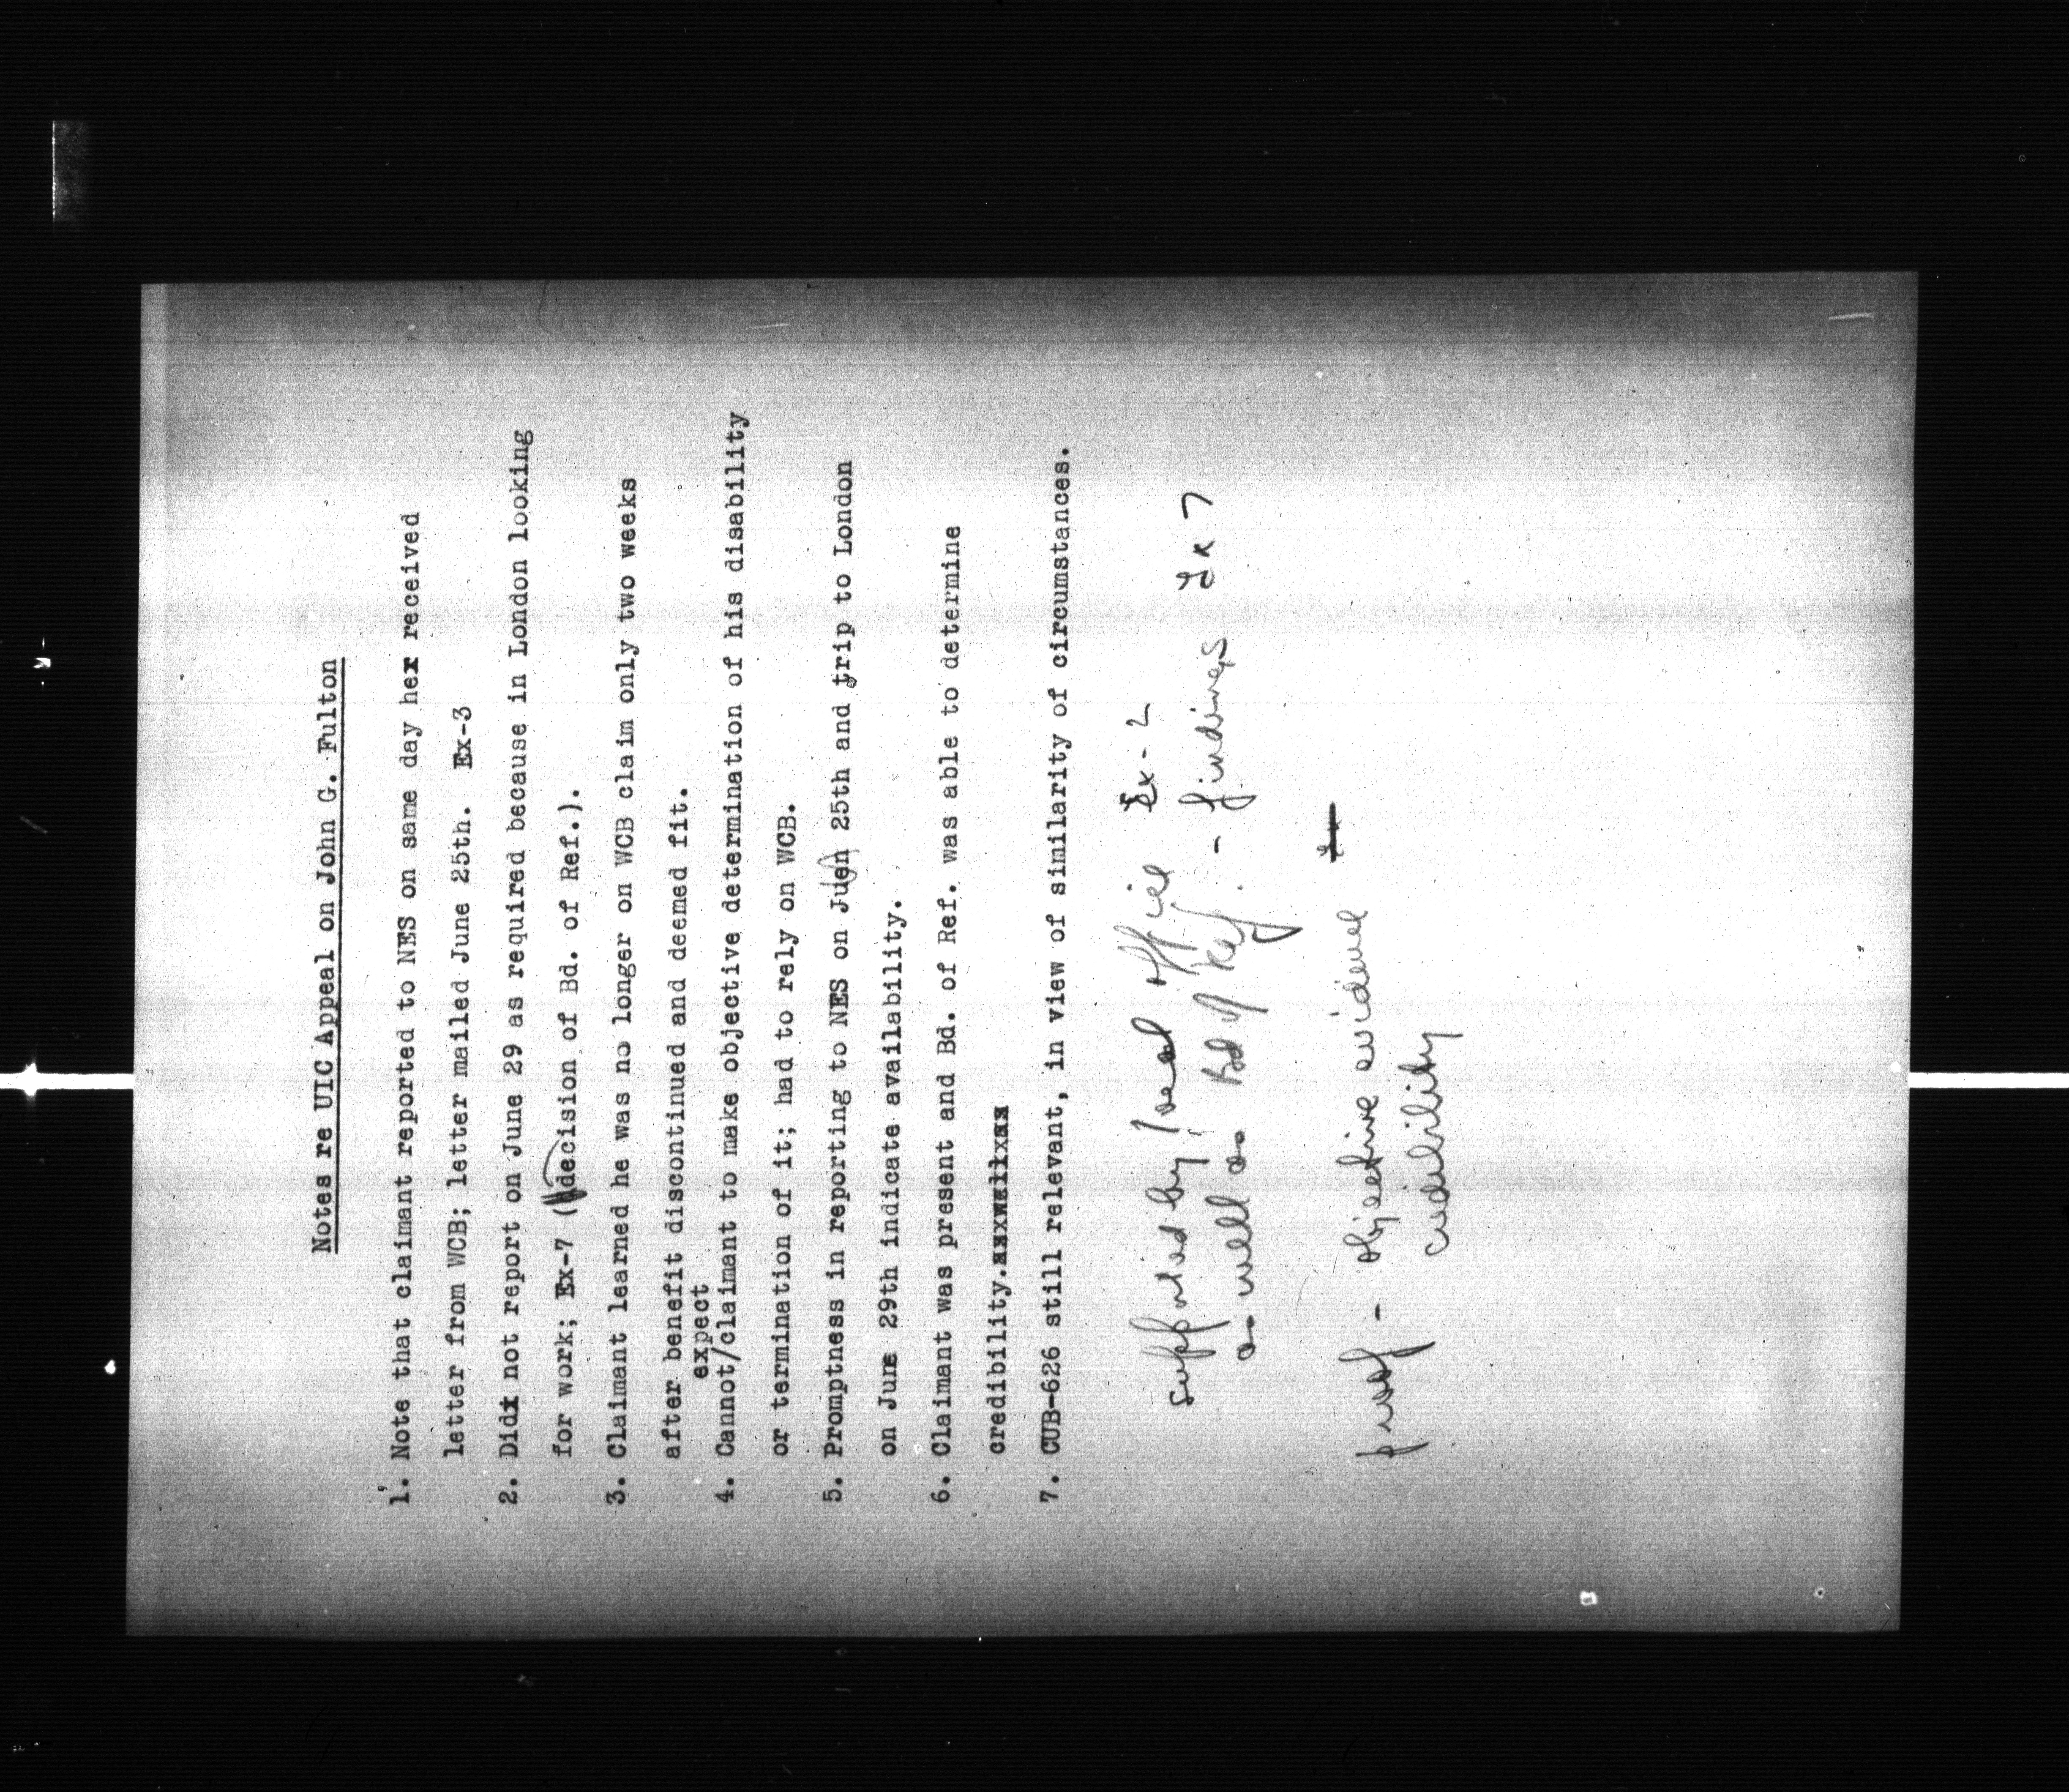 Notes re UIC Appeal on John G. Fulton
1. Note that claimant reported to NES on same day hex received
letter from WCB; letter mailed June 25th. Ex-3
2. Didx not report on June 29 as required because in London looking
for work; Ex-7 (decision of Bd. of Ref.).
3. Claimant learned he was no longer on WCB claim only two weeks
after benefit discontinued and deemed fit.
expect
4. Cannot/claimant to make objective determination of his disability
or termination of it; had to rely on WCB.
5. Promptness in reporting to NES on Juen 25th and trip to London
on June 29th indicate availability.
6. Claimant was present and Bd. of Ref. was able to determine
credibility.
7. CUB-626 still relevant, in view of similarity of circumstances.
supported by local office Ex-2
as well as Bd of Ref. - findings Ex 7
proof - objective evidence
credibility